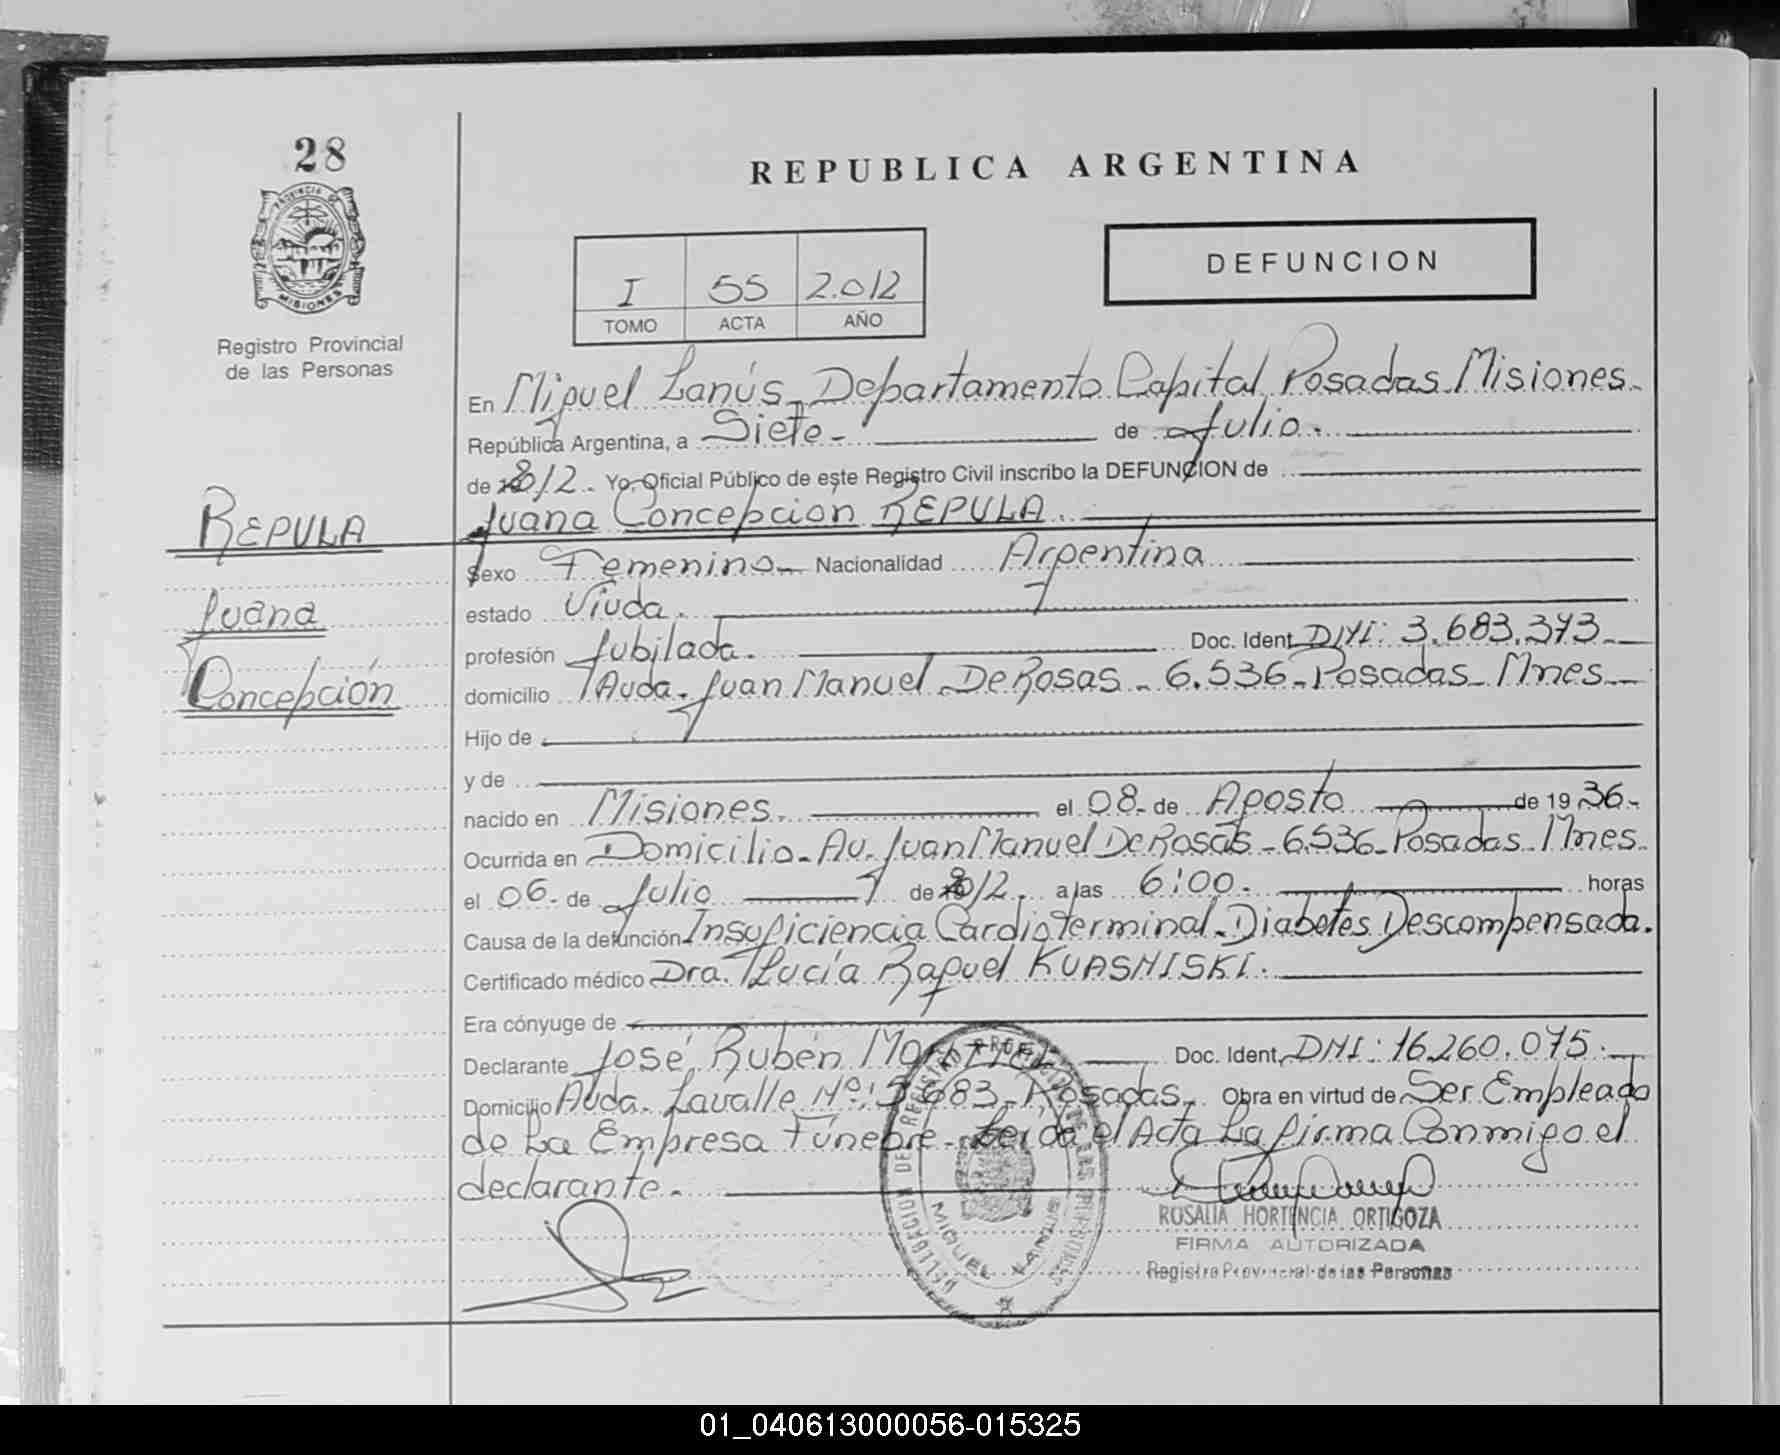 28
PROVINCIA DE
MISIONES
Registro Provincial
de las Personas
REPUBLICA ARGENTINA
I 55 2.012
TOMO ACTA AÑO
DEFUNCION
En Miguel Lanús - Departamento Capital Posadas Misiones.
República Argentina, a Siete - de Julio.
de 2012. Yo, Oficial Público de este Registro Civil inscribo la DEFUNCION de
Juana Concepción REPULA.
REPULA
Juana
Concepción
Sexo Femenino - Nacionalidad Argentina
estado Viuda.
profesión Jubilada. Doc. Ident. DNI: 3.683.373.
domicilio Avda. Juan Manuel De Rosas - 6.536 - Posadas - Mnes
Hijo de
y de
nacido en Misiones. el 08 - de Agosto de 19 36 -
Ocurrida en Domicilio - Av. Juan Manuel De Rosas - 6.536 - Posadas - Mnes.
el 06 - de Julio de 2012. a las 6:00. horas
Causa de la defunción Insuficiencia Cardio Terminal - Diabetes Descompensada.
Certificado médico Dra. Lucía Raquel KUASNISKI.
Era cónyuge de
Declarante José Rubén Doc. Ident. DNI: 16.260.075.
Domicilio Avda. Lavalle Nº: 3.683 - Posadas. Obra en virtud de Ser Empleado
de La Empresa Fúnebre - Leída el Acta La firma Conmigo el
declarante.
DELEGACION DEL REGISTRO PROVINCIAL DE LAS PERSONAS
MIGUEL LANUS
ROSALIA HORTENCIA ORTIGOZA
FIRMA AUTORIZADA
Registro Provincial de las Personas
01_040613000056-015325